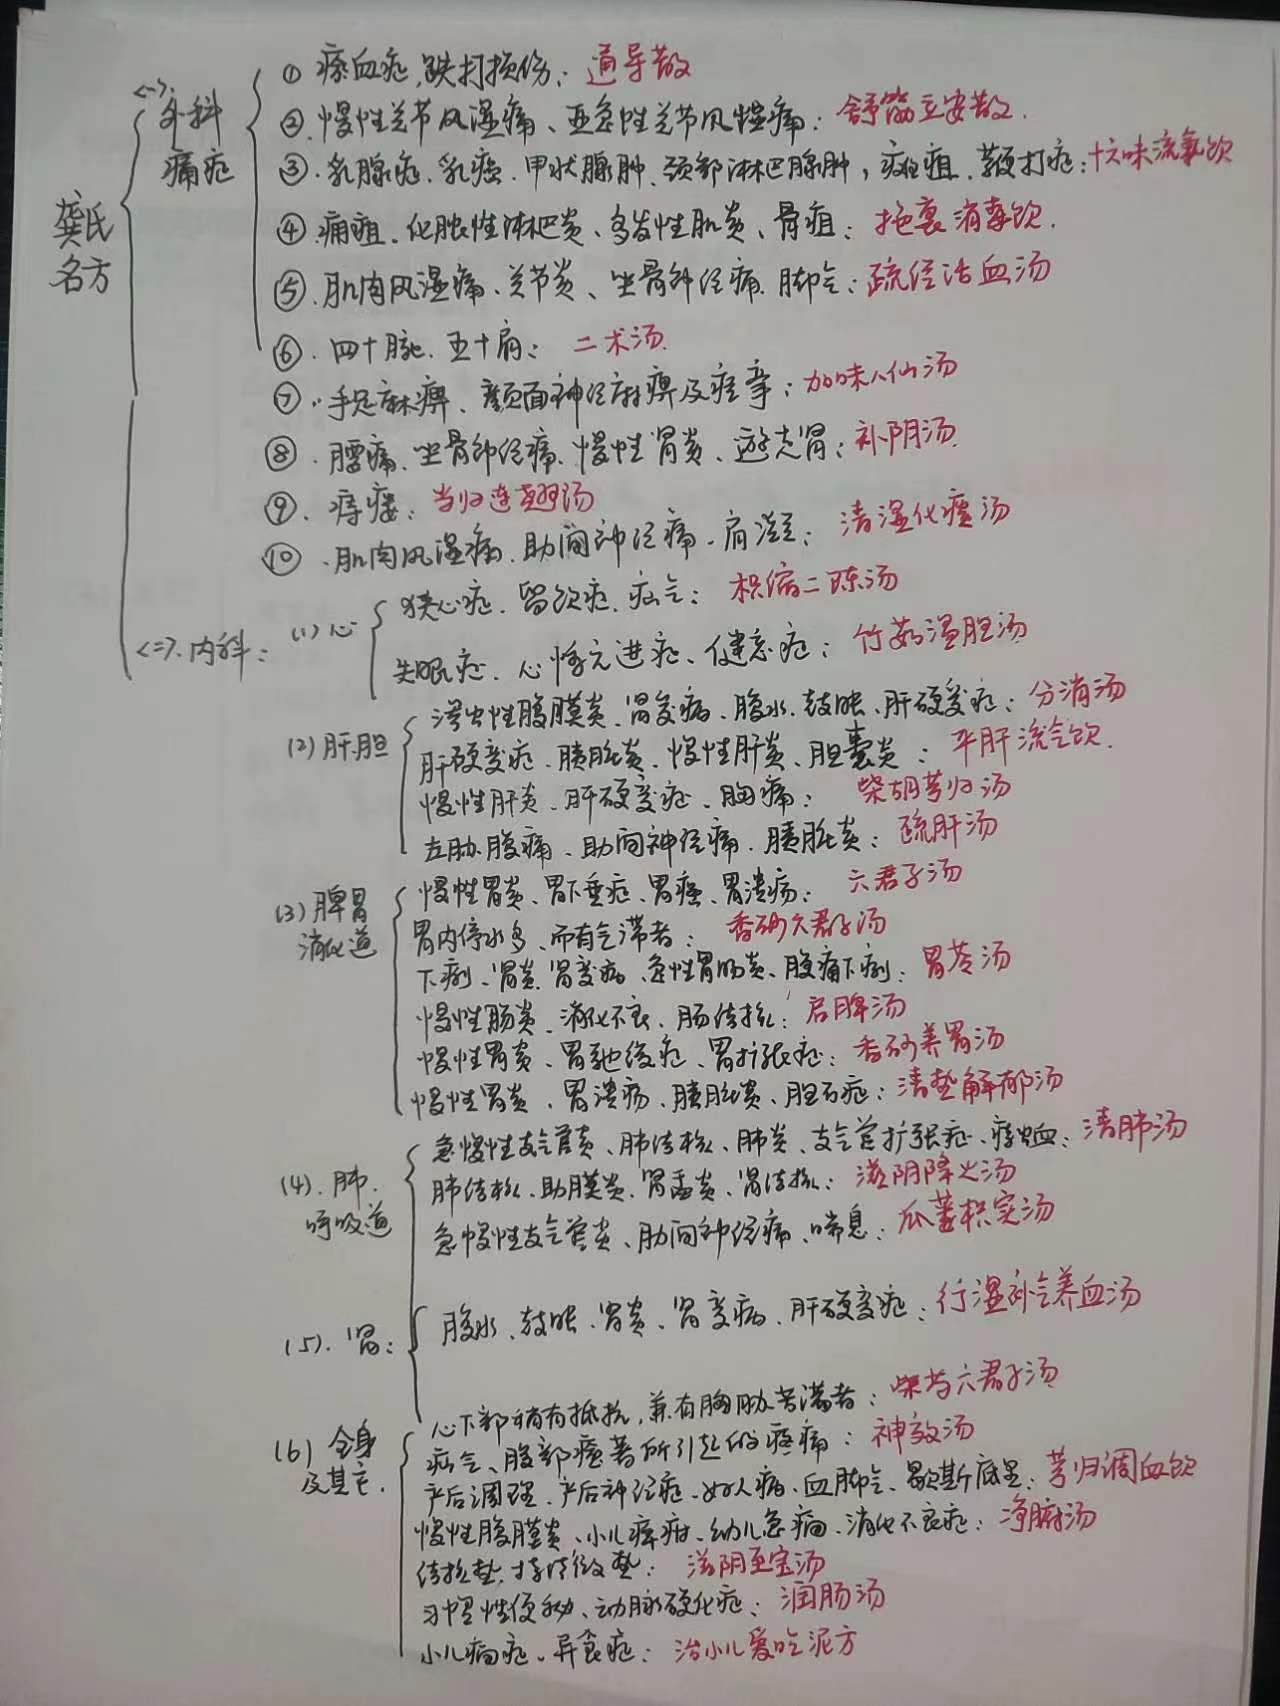 龚氏名方
<一>. 外科痛症
① 瘀血症, 跌打损伤: 通导散
②. 慢性关节风湿痛、亚急性关节风湿痛: 舒筋立安散.
③. 乳腺症. 乳癌. 甲状腺肿. 颈部淋巴腺肿, 疽. 鞭打症: 十六味流氣饮
④. 痈疽. 化脓性淋巴炎、多发性肌炎、骨疽: 托裏消毒饮.
⑤. 肌肉风湿痛、关节炎、坐骨神经痛. 脚气: 疏经活血汤
⑥. 四十腕. 五十肩: 二术汤.
⑦. 手足麻痹、颜面神经麻痹及痉挛: 加味八仙汤
⑧. 腰痛. 坐骨神经痛. 慢性肾炎、遊走肾: 补阴汤.
⑨. 痔瘘: 当归连翘汤
⑩. 肌肉风湿痛. 肋间神经痛. 肩凝: 清湿化痰汤
<二>. 内科:
(1) 心
狭心症. 留饮症. 疝气: 枳缩二陈汤
失眠症. 心悸亢进症、健忘症: 竹茹温胆汤
(2) 肝.胆
渗出性腹膜炎. 肾变病. 腹水. 鼓胀. 肝硬变症: 分消汤
肝硬变症. 胰脏炎. 慢性肝炎、胆囊炎: 平肝流气饮.
慢性肝炎. 肝硬变症、胸痛: 柴胡芎归汤
左胁腹痛、肋间神经痛. 胰脏炎: 疏肝汤
(3) 脾胃消化道
慢性胃炎、胃下垂症、胃癌、胃溃疡: 六君子汤
胃内停水多、而有气滞者: 香砂六君子汤
下痢、肾炎. 肾变病. 急性胃肠炎、腹痛下痢: 胃苓汤
慢性肠炎、消化不良、肠结核: 启脾汤
慢性胃炎、胃弛缓症. 胃扩张症: 香砂养胃汤
慢性胃炎、胃溃疡. 胰脏炎. 胆石症: 清热解郁汤
(4). 肺. 呼吸道
急慢性支气管炎、肺结核、肺炎、支气管扩张症、痰血: 清肺汤
肺结核. 肋膜炎. 肾盂炎. 肾结核: 滋阴降火汤
急慢性支气管炎、肋间神经痛. 喘息: 瓜蒌枳实汤
(5). 肾:
腹水、鼓胀. 肾炎、肾变病. 肝硬变症: 行湿补气养血汤
(6) 全身及其它.
心下部稍有抵抗, 兼有胸胁苦满者: 柴芍六君子汤
疝气、腹部癒着所引起的疼痛: 神效汤
产后调理、产后神经症. 妇人病. 血脚气、歇斯底里: 芎归调血饮
慢性腹膜炎、小儿痞疳. 幼儿急痫. 消化不良症: 净腑汤
结核热. 持续微热: 滋阴至宝汤
习惯性便秘、动脉硬化症: 润肠汤
小儿痫症. 异食症: 治小儿爱吃泥方